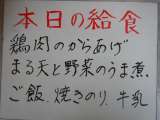 本日の給食
鶏肉のからあげ
まる天と野菜のうま煮.
ご飯 焼きのり 牛乳